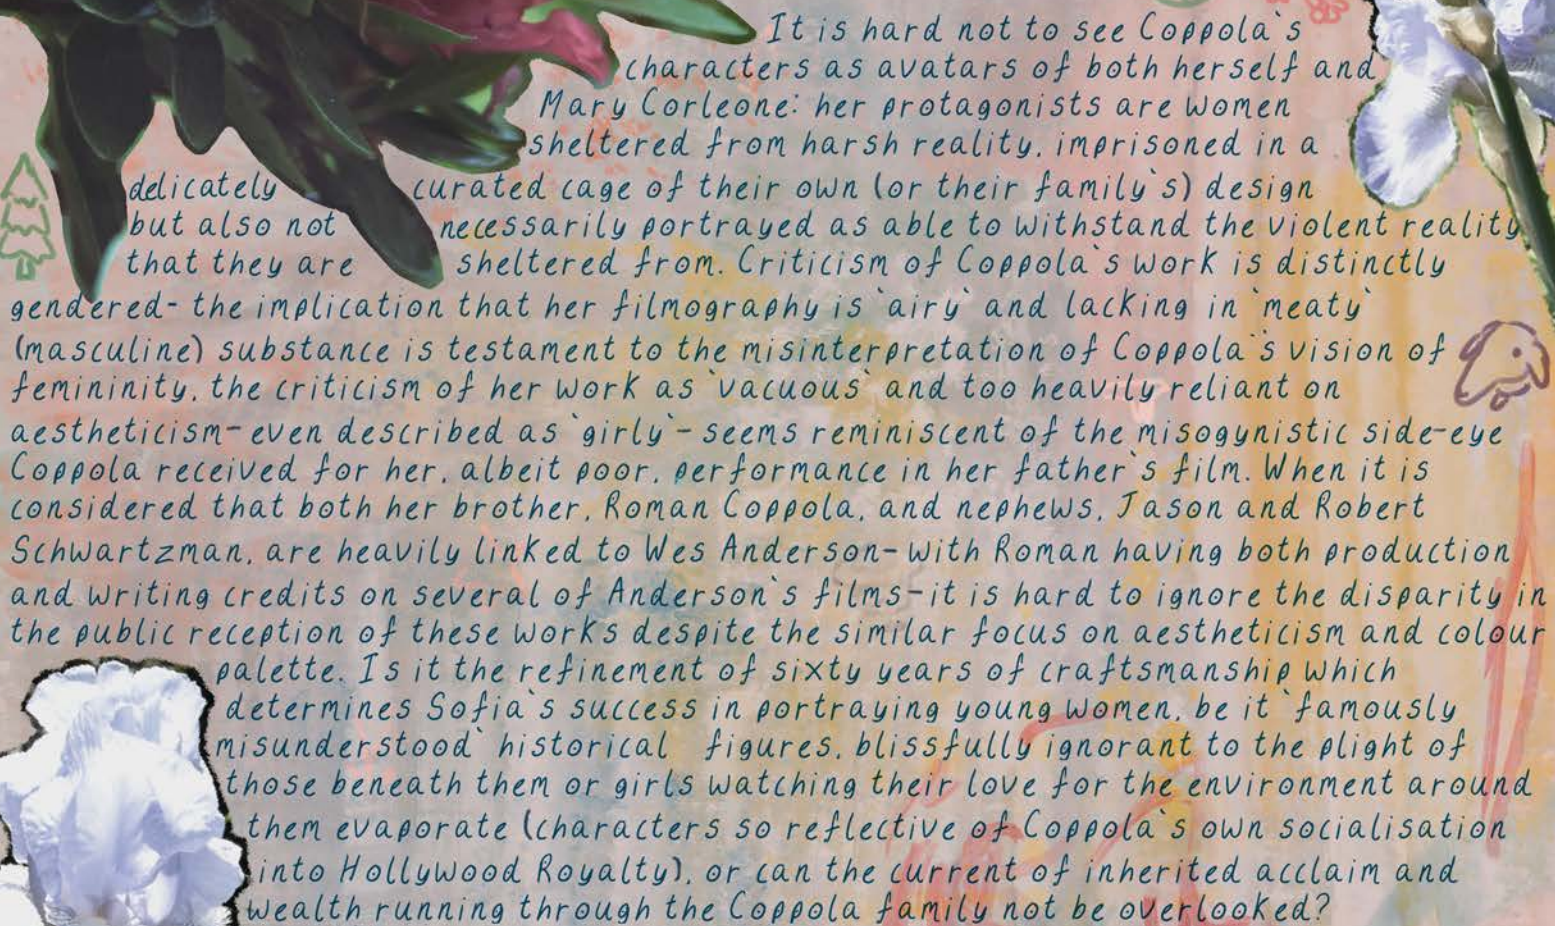 It is hard not to see Coppola`s
characters as avatars of both herself and
Mary Corleone: her protagonists are women
sheltered from harsh reality, imprisoned in a
delicately curated cage of their own (or their family`s) design
but also not necessarily portrayed as able to withstand the violent reality
that they are sheltered from. Criticism of Coppola`s work is distinctly
gendered- the implication that her filmography is `airy` and lacking in `meaty`
(masculine) substance is testament to the misinterpretation of Coppola`s vision of
femininity, the criticism of her work as `vacuous` and too heavily reliant on
aestheticism-even described as `girly`- seems reminiscent of the misogynistic side-eye
Coppola received for her, albeit poor, performance in her father`s film. When it is
considered that both her brother, Roman Coppola, and nephews, Jason and Robert
Schwartzman, are heavily linked to Wes Anderson- with Roman having both production
and writing credits on several of Anderson`s films-it is hard to ignore the disparity in
the public reception of these works despite the similar focus on aestheticism and colour
palette. Is it the refinement of sixty years of craftsmanship which
determines Sofia`s success in portraying young women, be it `famously
misunderstood` historical figures, blissfully ignorant to the plight of
those beneath them or girls watching their love for the environment around
them evaporate (characters so reflective of Coppola`s own socialisation
into Hollywood Royalty), or can the current of inherited acclaim and
wealth running through the Coppola family not be overlooked?